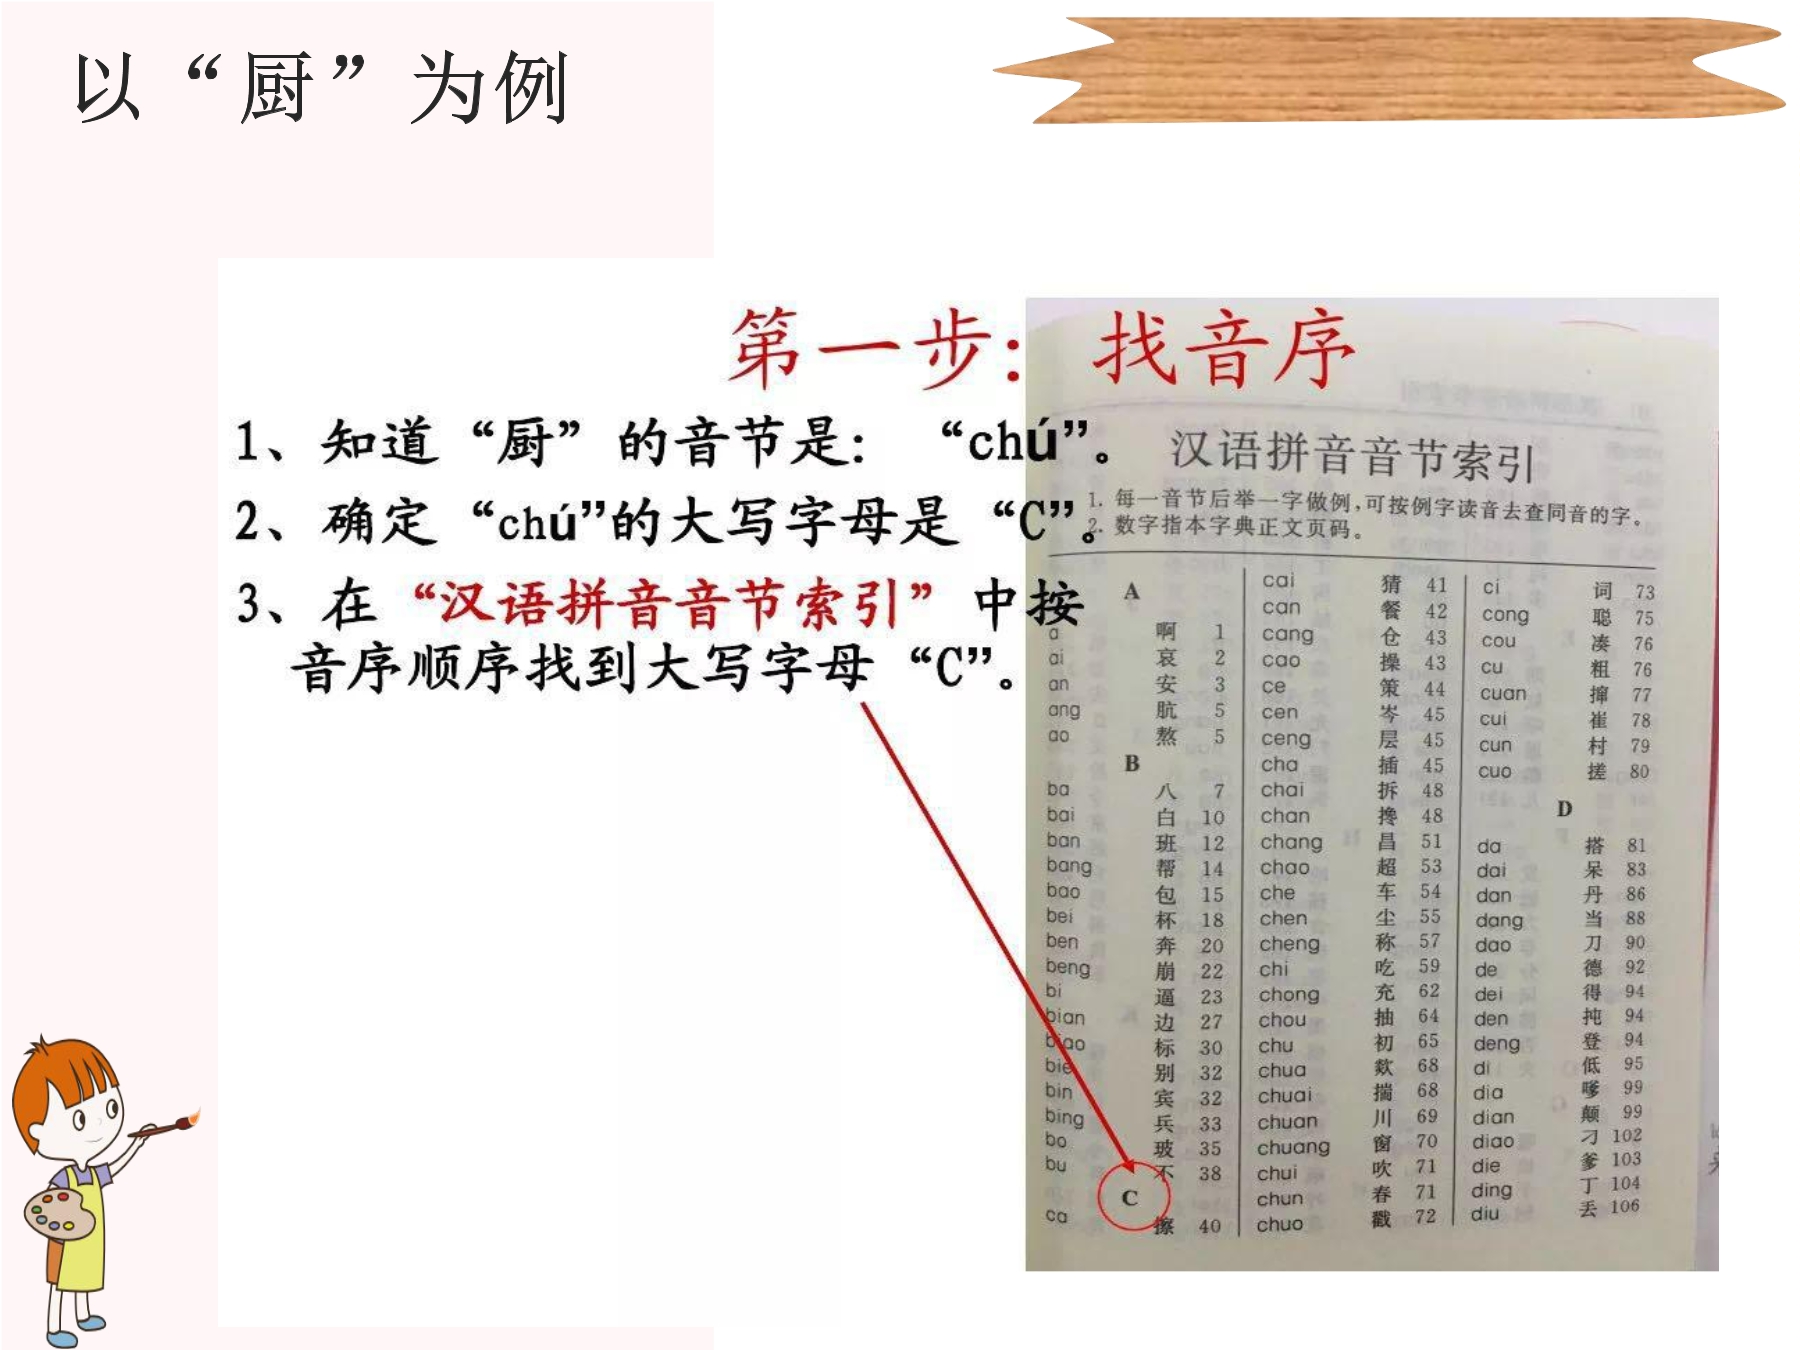 以“厨”为例
第一步：找音序
1、知道“厨”的音节是：“chú”。
2、确定“chú”的大写字母是“C”。
3、在“汉语拼音音节索引”中按
音序顺序找到大写字母“C”。
汉语拼音音节索引
1. 每一音节后举一字做例，可按例字读音去查同音的字。
2. 数字指本字典正文页码。
A
a 啊 1
ai 哀 2
an 安 3
ang 肮 5
ao 熬 5
B
ba 八 7
bai 白 10
ban 班 12
bang 帮 14
bao 包 15
bei 杯 18
ben 奔 20
beng 崩 22
bi 逼 23
bian 边 27
biao 标 30
bie 别 32
bin 宾 32
bing 兵 33
bo 玻 35
bu 不 38
C
ca 擦 40
cai 猜 41
can 餐 42
cang 仓 43
cao 操 43
ce 策 44
cen 岑 45
ceng 层 45
cha 插 45
chai 拆 48
chan 搀 48
chang 昌 51
chao 超 53
che 车 54
chen 尘 55
cheng 称 57
chi 吃 59
chong 充 62
chou 抽 64
chu 初 65
chua 欻 68
chuai 揣 68
chuan 川 69
chuang 窗 70
chui 吹 71
chun 春 71
chuo 戳 72
ci 词 73
cong 聪 75
cou 凑 76
cu 粗 76
cuan 撺 77
cui 崔 78
cun 村 79
cuo 搓 80
D
da 搭 81
dai 呆 83
dan 丹 86
dang 当 88
dao 刀 90
de 德 92
dei 得 94
den 扽 94
deng 登 94
di 低 95
dia 嗲 99
dian 颠 99
diao 刁 102
die 爹 103
ding 丁 104
diu 丢 106